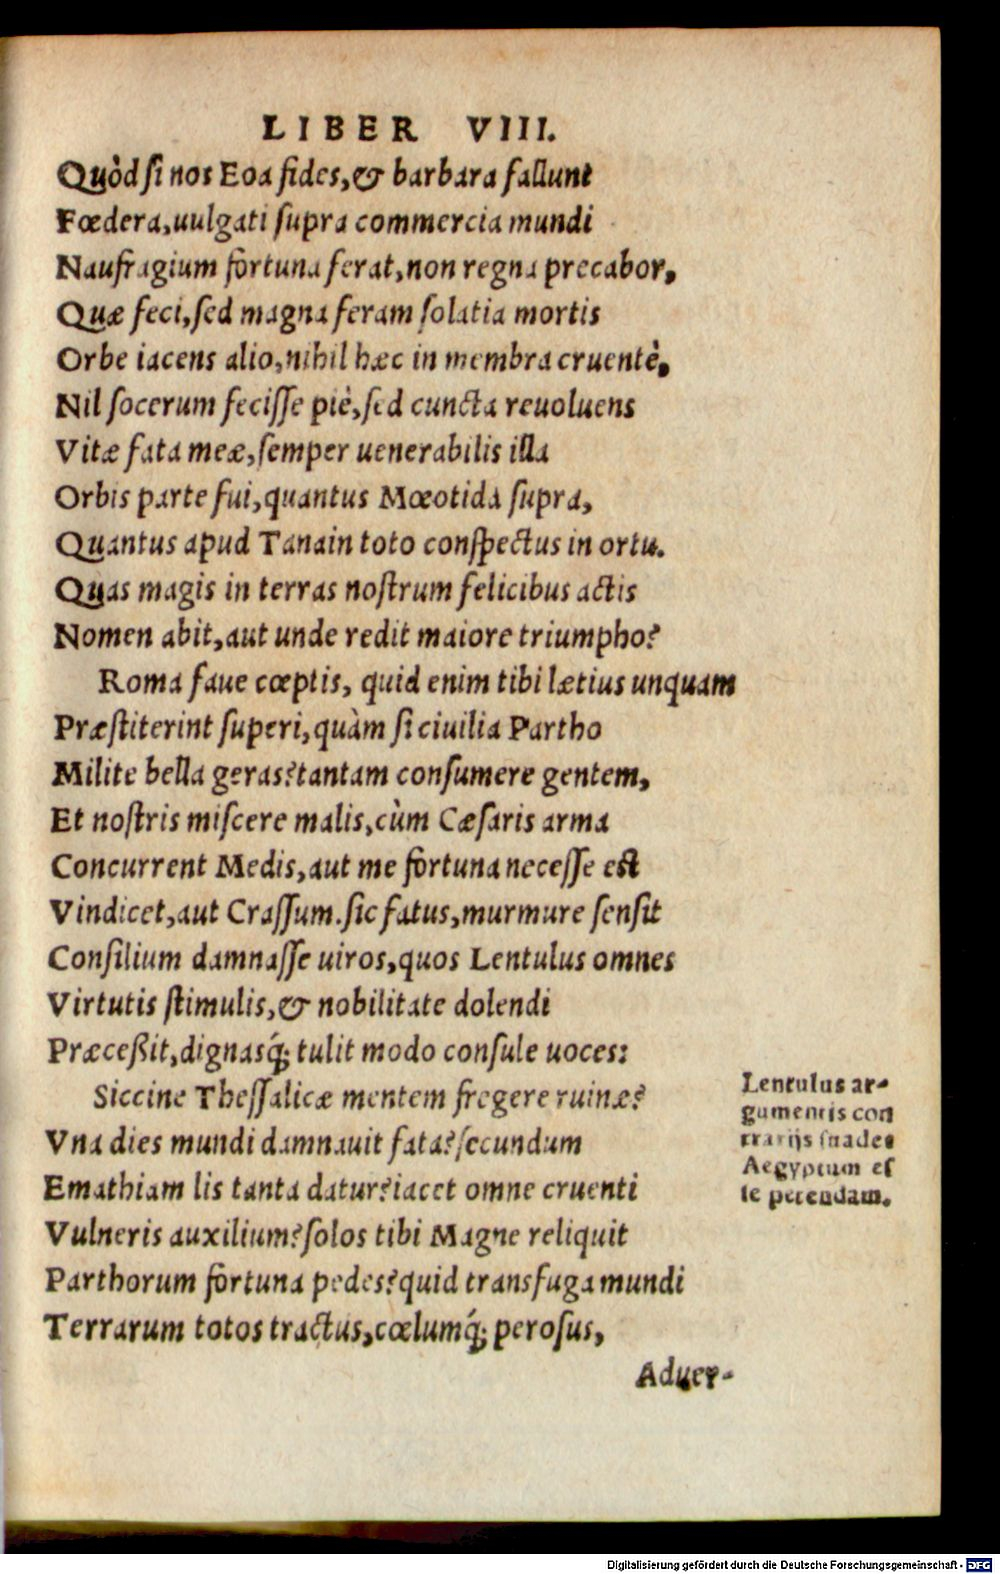 LIBER VIII.
Quòd si nos Eoa fides, & barbara fallunt
Fœdera, uulgati supra commercia mundi
Naufragium fortuna ferat, non regna precabor,
Quæ feci, sed magna feram solatia mortis
Orbe iacens alio, nihil hæc in membra cruentè,
Nil socerum fecisse piè, sed cuncta reuoluens
Vitæ fata meæ, semper uenerabilis illa
Orbis parte fui, quantus Mœotida supra,
Quantus apud Tanain toto conspectus in ortu.
Quas magis in terras nostrum felicibus actis
Nomen abit, aut unde redit maiore triumpho?
Roma faue cœptis, quid enim tibi lætius unquam
Præstiterint superi, quàm si ciuilia Partho
Milite bella geras? tantam consumere gentem,
Et nostris miscere malis, cùm Cæsaris arma
Concurrent Medis, aut me fortuna necesse est
Vindicet, aut Crassum. sic fatus, murmure sensit
Consilium damnasse uiros, quos Lentulus omnes
Virtutis stimulis, & nobilitate dolendi
Præceßit, dignasq́; tulit modo consule uoces:
Siccine Thessalicæ mentem fregere ruinæ?
Vna dies mundi damnauit fata? secundum
Emathiam lis tanta datur? iacet omne cruenti
Vulneris auxilium? solos tibi Magne reliquit
Parthorum fortuna pedes? quid transfuga mundi
Terrarum totos tractus, cœlumq́; perosus,
Aduer-
Lentulus ar-
gumentis con
trarijs suadet
Aegyptum es
se petendam.
Digitalisierung gefördert durch die Deutsche Forschungsgemeinschaft - DFG